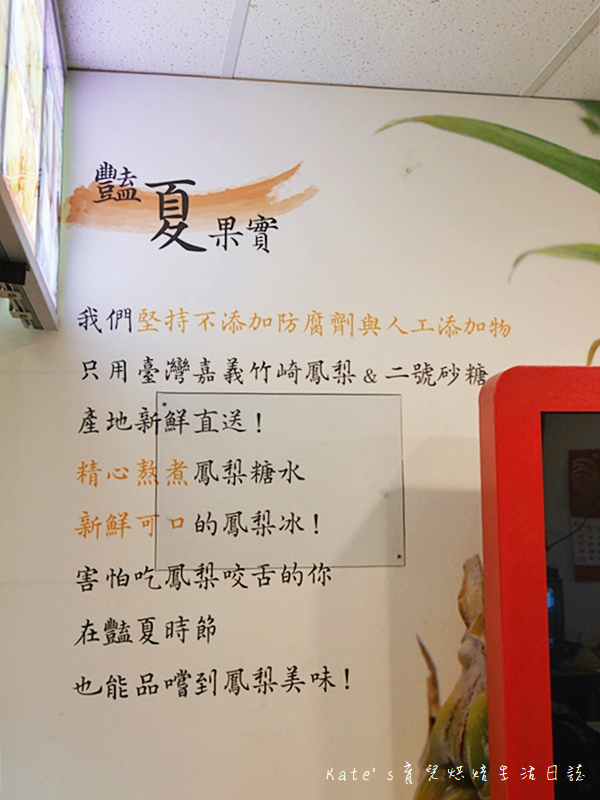 豔夏果實
我們堅持不添加防腐劑與人工添加物
只用臺灣嘉義竹崎鳳梨&二號砂糖
產地新鮮直送！
精心熬煮鳳梨糖水
新鮮可口的鳳梨冰！
害怕吃鳳梨咬舌的你
在豔夏時節
也能品嚐到鳳梨美味！
Kate's育兒烘焙生活日誌